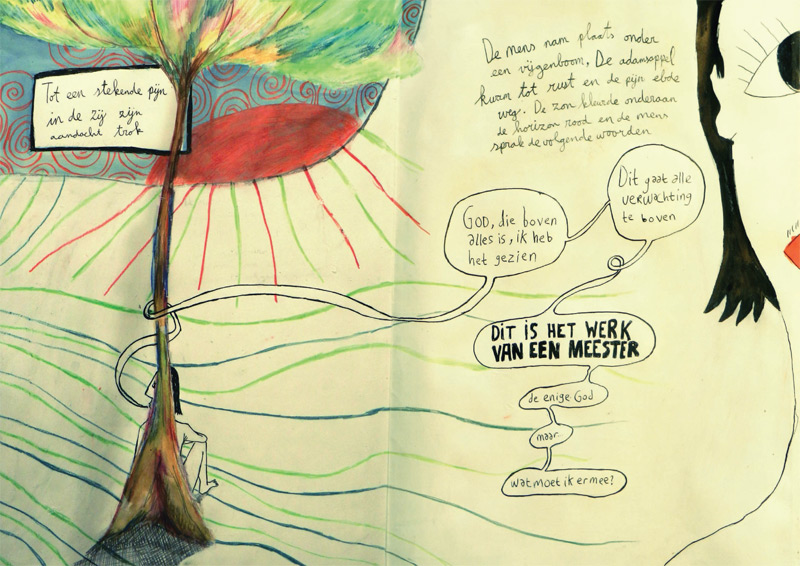 Tot een stekende pijn
in de zij zijn
aandacht trok
De mens nam plaats onder
een vijgenboom. De adamsappel
kwam tot rust en de pijn ebde
weg. De zon kleurde onderaan
de horizon rood en de mens
sprak de volgende woorden
GOD, die boven
alles is, ik heb
het gezien
Dit gaat alle
verwachting
te boven
DIT IS HET WERK
VAN EEN MEESTER
de enige God
maar...
wat moet ik ermee?